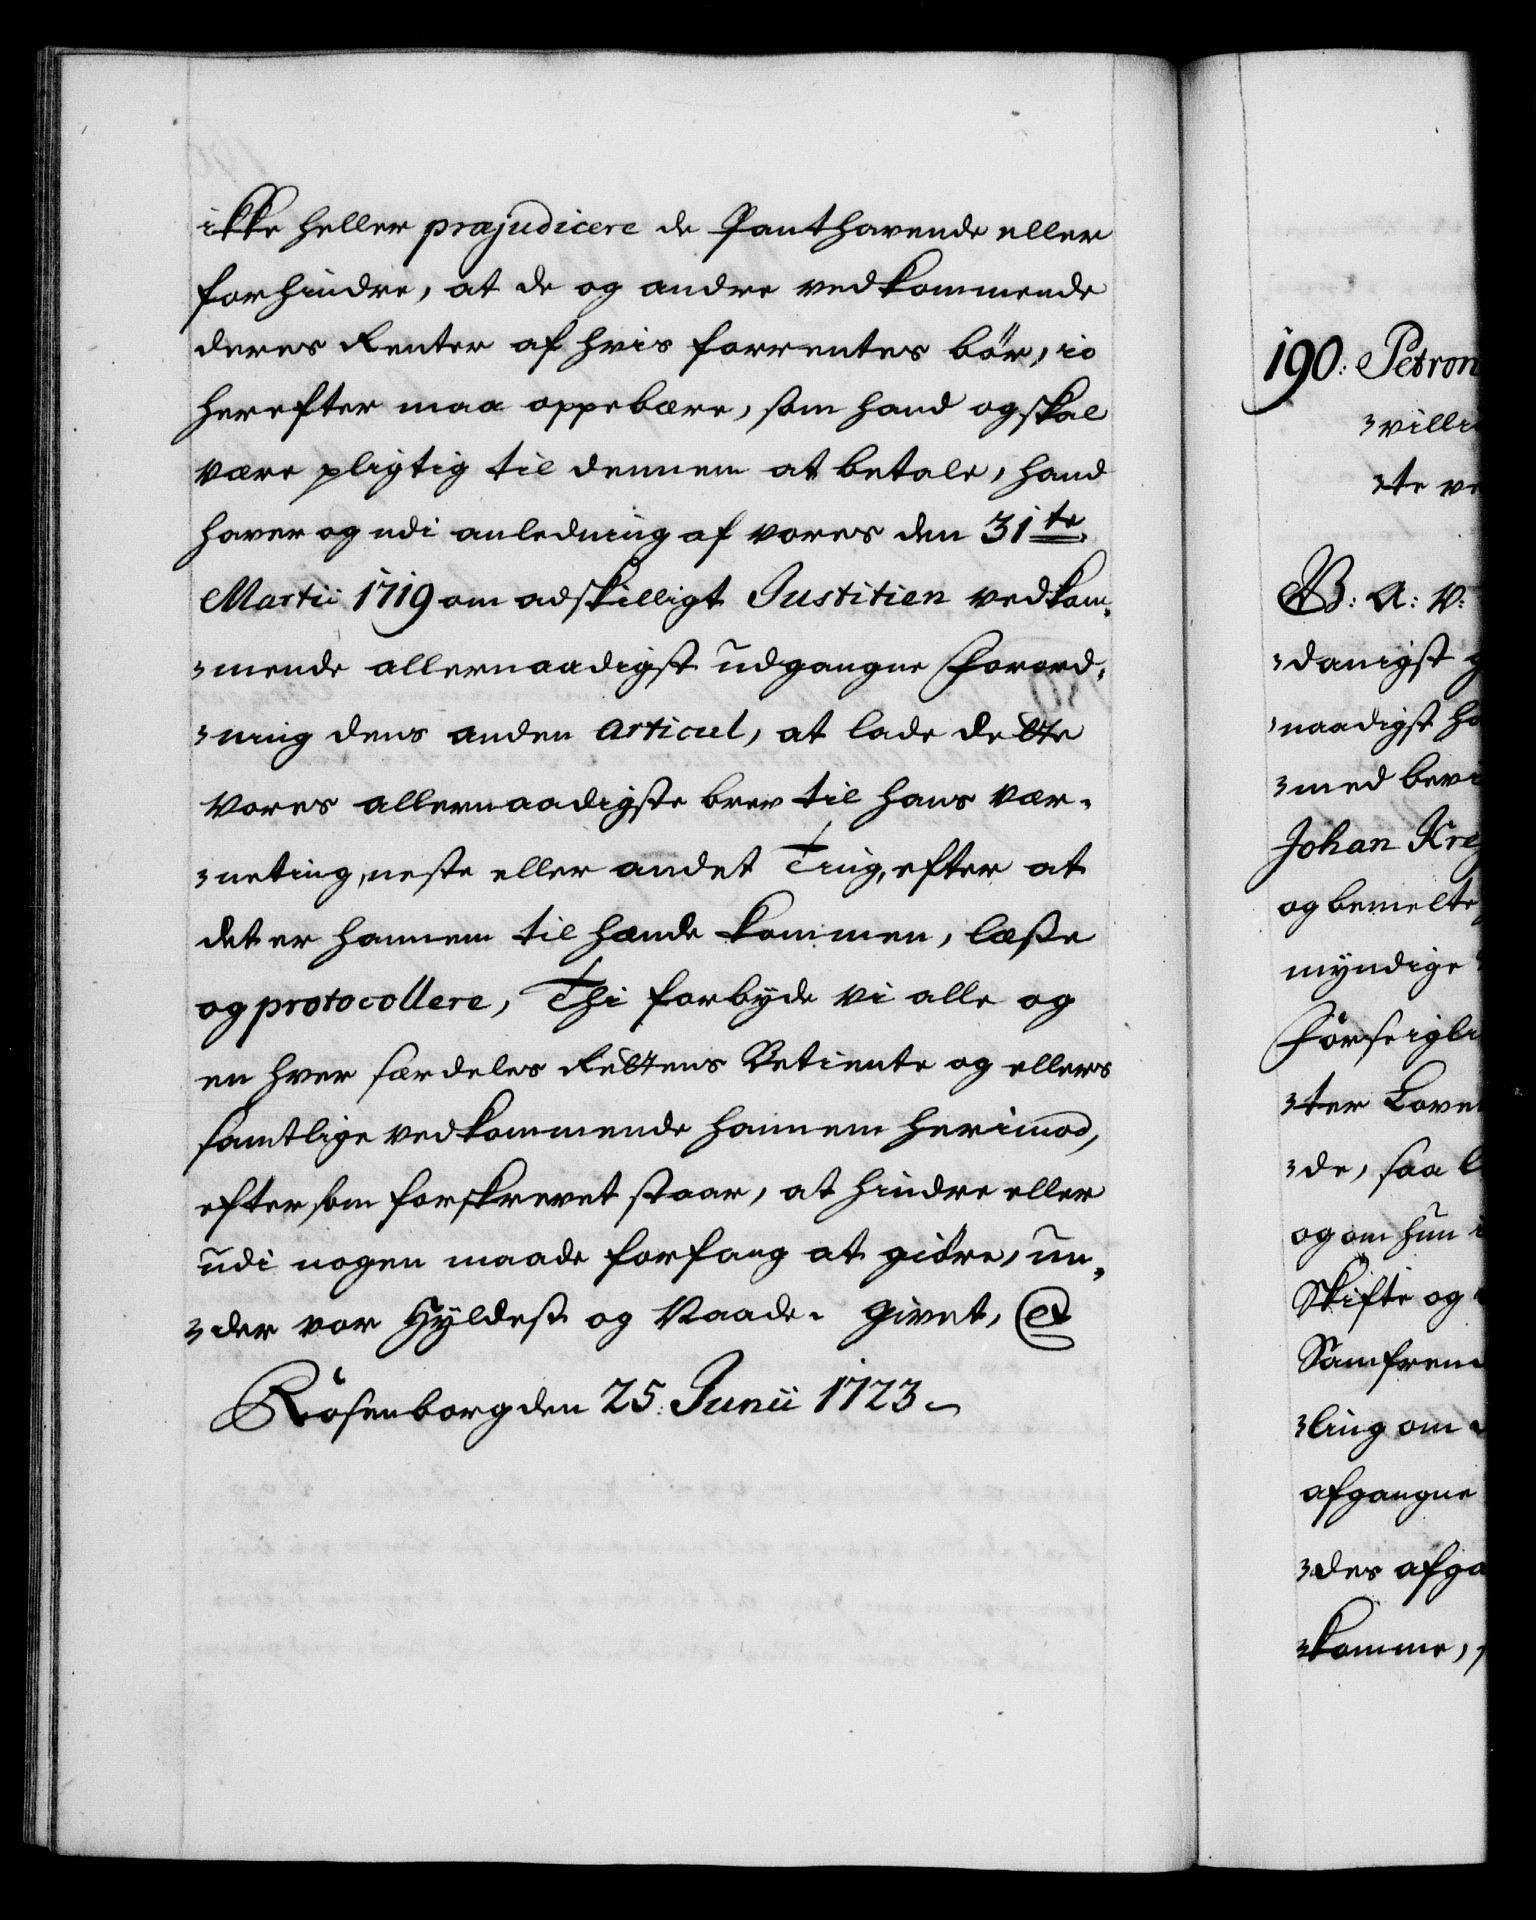 ikke heller præjudicere de Panthavende eller
forhindre, at de og andre vedkommende
deres Renter af hvis forrentes bör, io
herefter maa oppebære, som hand og skal
være pligtig til dennem at betale, hand
haver og udi anledning af vores den 31te
Martii 1719 om adskilligt Justitien vedkom-
-mende allernaadigst udgangne Forord-
-ning dens anden Articul, at lade dette
Vores allernaadigste brev til hans Vær-
-neting, neste eller andet Ting, efter at
det er hannem til hænde kommen, læse
og protocollere, Thi forbyde Vi alle og
en hver særdeles Rettens Betiente og ellers
samtlige vedkommende hannem herimod,
eftersom forskrevet staar, at hindre eller
udi nogen maade forfang at giöre, un-
-der vor Hyldest og Naade. Givet, &
Rosenborg den 25. Junii 1723
190: Petron
-villi
-te ve
G: A: V:
-danigst g
-naadigst ha
-med bevi
Johan Kre
og bemelte
myndige
Forseigli
-ter Loven
-de, saa l
og om hun i
Skifte og
Samfren
-ling om
afgangne
-des afga
-komme, s